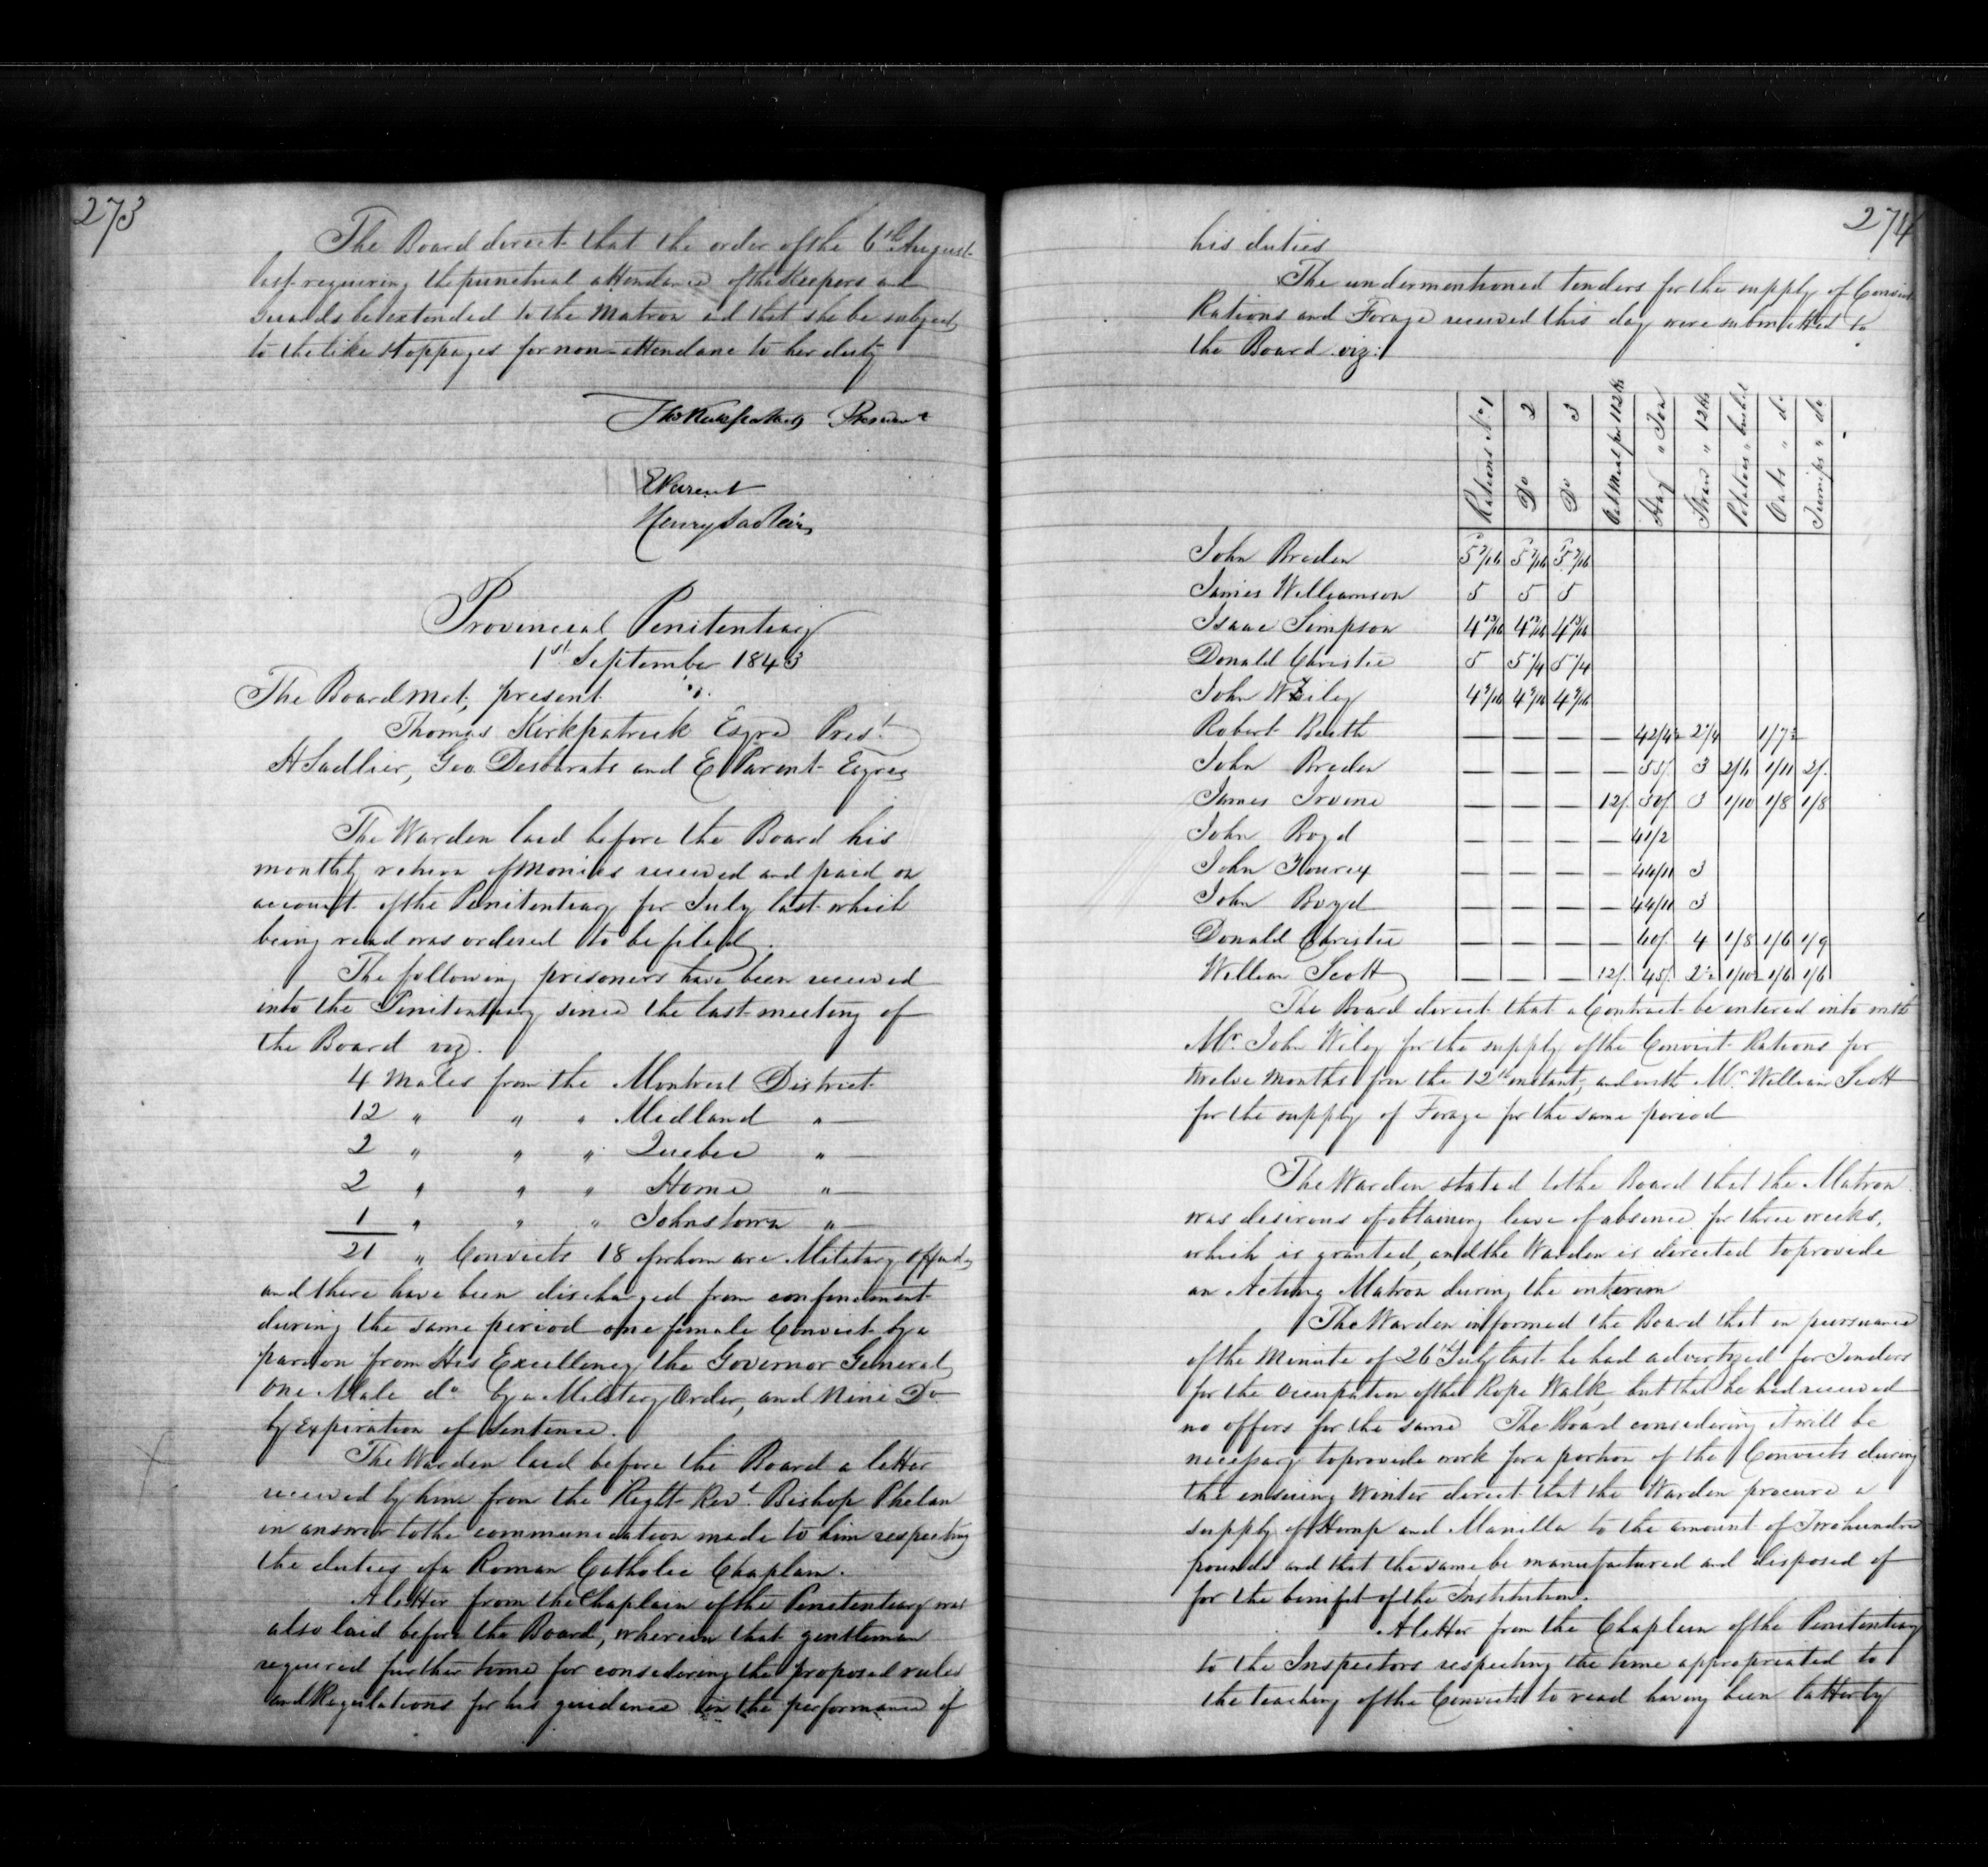 273
The Board direct that the order of the 6th August
last requiring the punctual attendance of the Keepers and
Guards be extended to the Matron and that she be subject
to the like stoppages for non-attendance to her duty
Thos Kirkpatrick President
E Parent
Henry Sadleir
Provincial Penitentiary
1st September 1843
The Board met, present
Thomas Kirkpatrick Esqre Prest
H Sadlier, Geo. Desbarats and E Parent Esqres
The Warden laid before the Board his
monthly return of Monies received and paid on
account of the Penitentiary for July last which
being read was ordered to be filed.
The following prisoners have been received
into the Penitentiary since the last meeting of
the Board viz.
4 Males from the Montreal District
12 " " " Midland "
2 " " " Quebec "
2 " " " Home "
1 " " " Johnstown "
21 " Convicts 18 of whom are Military
and there have been discharged from confinement
during the same period one female Convict by a
pardon from His Excellency the Governor General,
one Male do by a Military Order, and Nine Do
by Expiration of Sentence.
The Warden laid before the Board a letter
received by him from the Right Revd Bishop Phelan
in answer to the communication made to him respecting
the duties of a Roman Catholic Chaplain.
A letter from the Chaplain of the Penitentiary was
also laid before the Board, wherein that gentleman
required further time for considering the proposed rules
and Regulations for his guidance in the performance of
274
his duties
The undermentioned tenders for the supply of Convict
Rations and Forage received this day were submitted to
the Board viz:
Rations No. 1 | Do 2 | Do 3 | Oat Meal per 112 lbs | Hay " Ton | Straw " 12 lbs | Potatoes " bushel | Oats " do | Turnips " do
John Breden 5 7/16 5 7/16 5 7/16
James Williamson 5 5 5
Isaac Simpson 4 13/16 4 13/16 4 13/16
Donald Christie 5 5 1/4 5 1/4
John Wiley 4 9/16 4 9/16 4 9/16
Robert — — — — 2 1/4 1/7½
John Breden — — — — 55/. 3 2/6 1/11 2/.
James Irvine — — — 12/. 50/. 3 1/10 1/8 1/8
John Boyd — — — — 41/2
John — — — — 44/11 3
John Boyd — — — — 44/11 3
Donald Christie — — — — 40/. 4 1/8 1/6 1/9
William Scott — — — 12/. 45/. 2½ 1/10½ 1/6 1/6
The Board direct that a Contract be entered into with
Mr. John Wiley for the supply of the Convict Rations for
twelve months from the 12th instant, and with Mr. William Scott
for the supply of Forage for the same period
The Warden stated to the Board that the Matron
was desirous of obtaining leave of absence for three weeks,
which is granted, and the Warden is directed to provide
an Acting Matron during the interim
The Warden informed the Board that in pursuance
of the Minute of 26th July last he had advertized for Tenders
for the occupation of the Rope Walk, but that he had received
no offers for the same The Board considering it will be
necessary to provide work for a portion of the Convicts during
the ensuing Winter direct that the Warden procure a
supply of Hemp and Manilla to the amount of Two hundred
pounds and that the same be manufactured and disposed of
for the benifit of the Institution.
A letter from the Chaplain of the Penitentiary
to the Inspectors respecting the time appropriated to
the teaching of the Convicts to read having been latterly